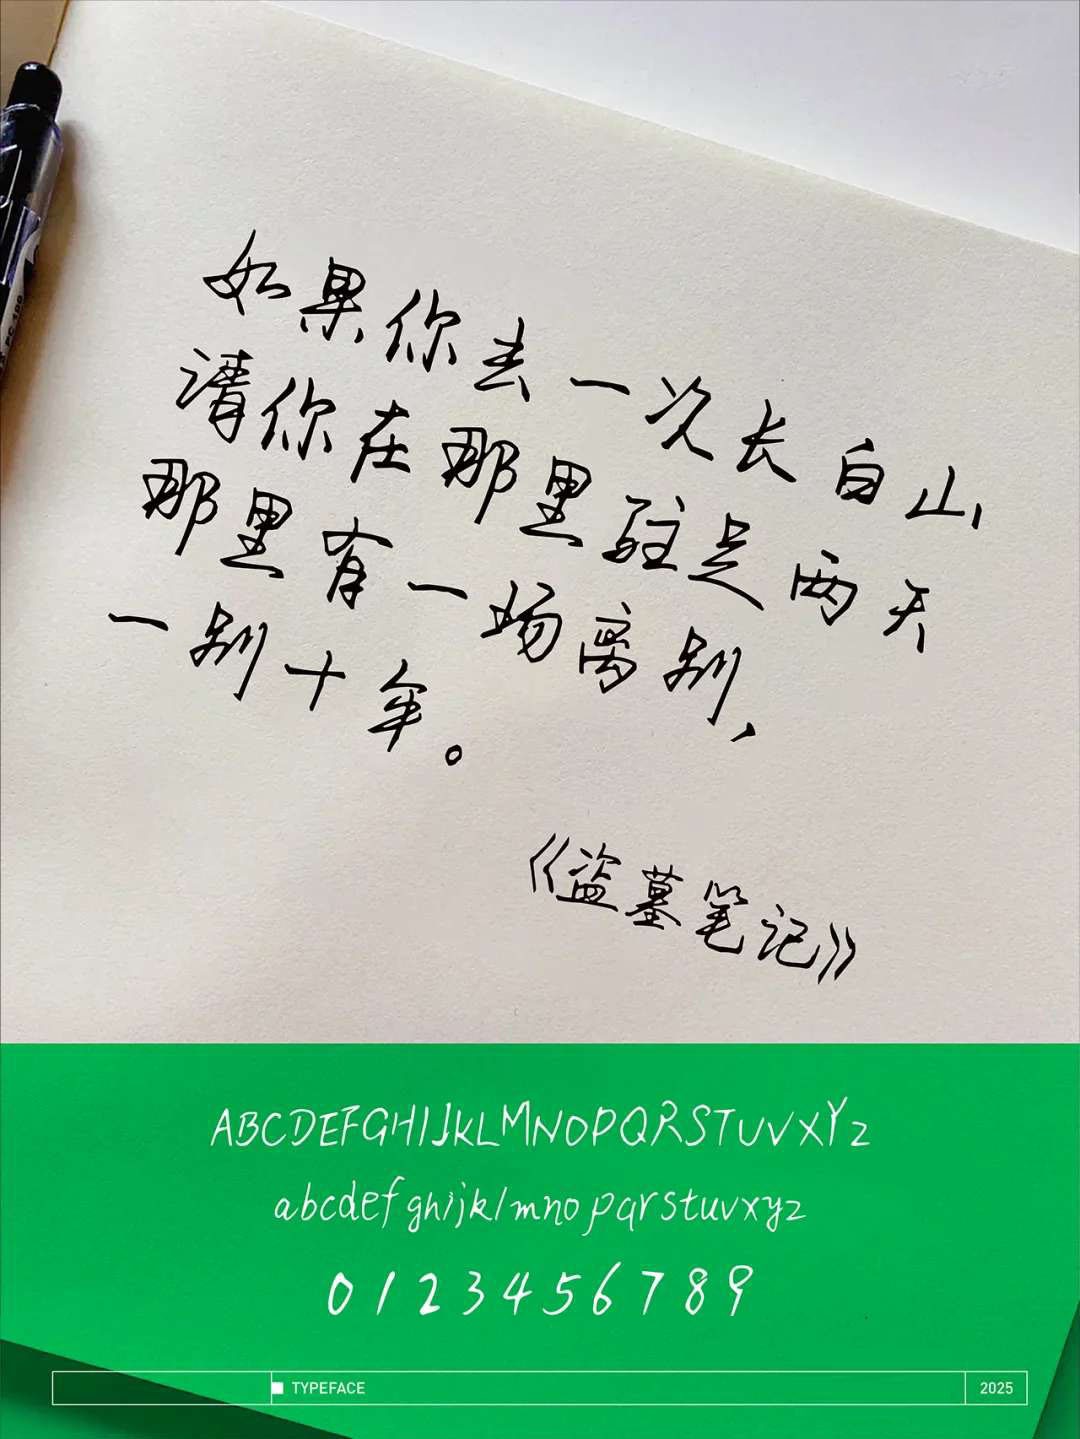 如果你去一次长白山
请你在那里驻足两天
那里有一场离别，
一别十年。
《盗墓笔记》
ABCDEFGHIJKLMNOPQRSTUVXYZ
abcdefghijklmnopqrstuvxyz
0123456789
TYPEFACE
2025